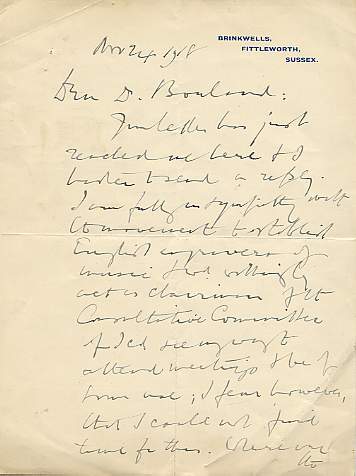 BRINKWELLS,
FITTLEWORTH,
SUSSEX.
Nov 24 1918
Dear D. Borland:
Your letter has just
reached me here & I
hasten to send a reply.
I am fully in sympathy with
the movement to establish
English engravers of
music & wd willingly
act as chairman of the
Consultative Committee
if I cd see my way to
attend meetings & be of
some use; I fear however,
that I could not find
time for this. There are